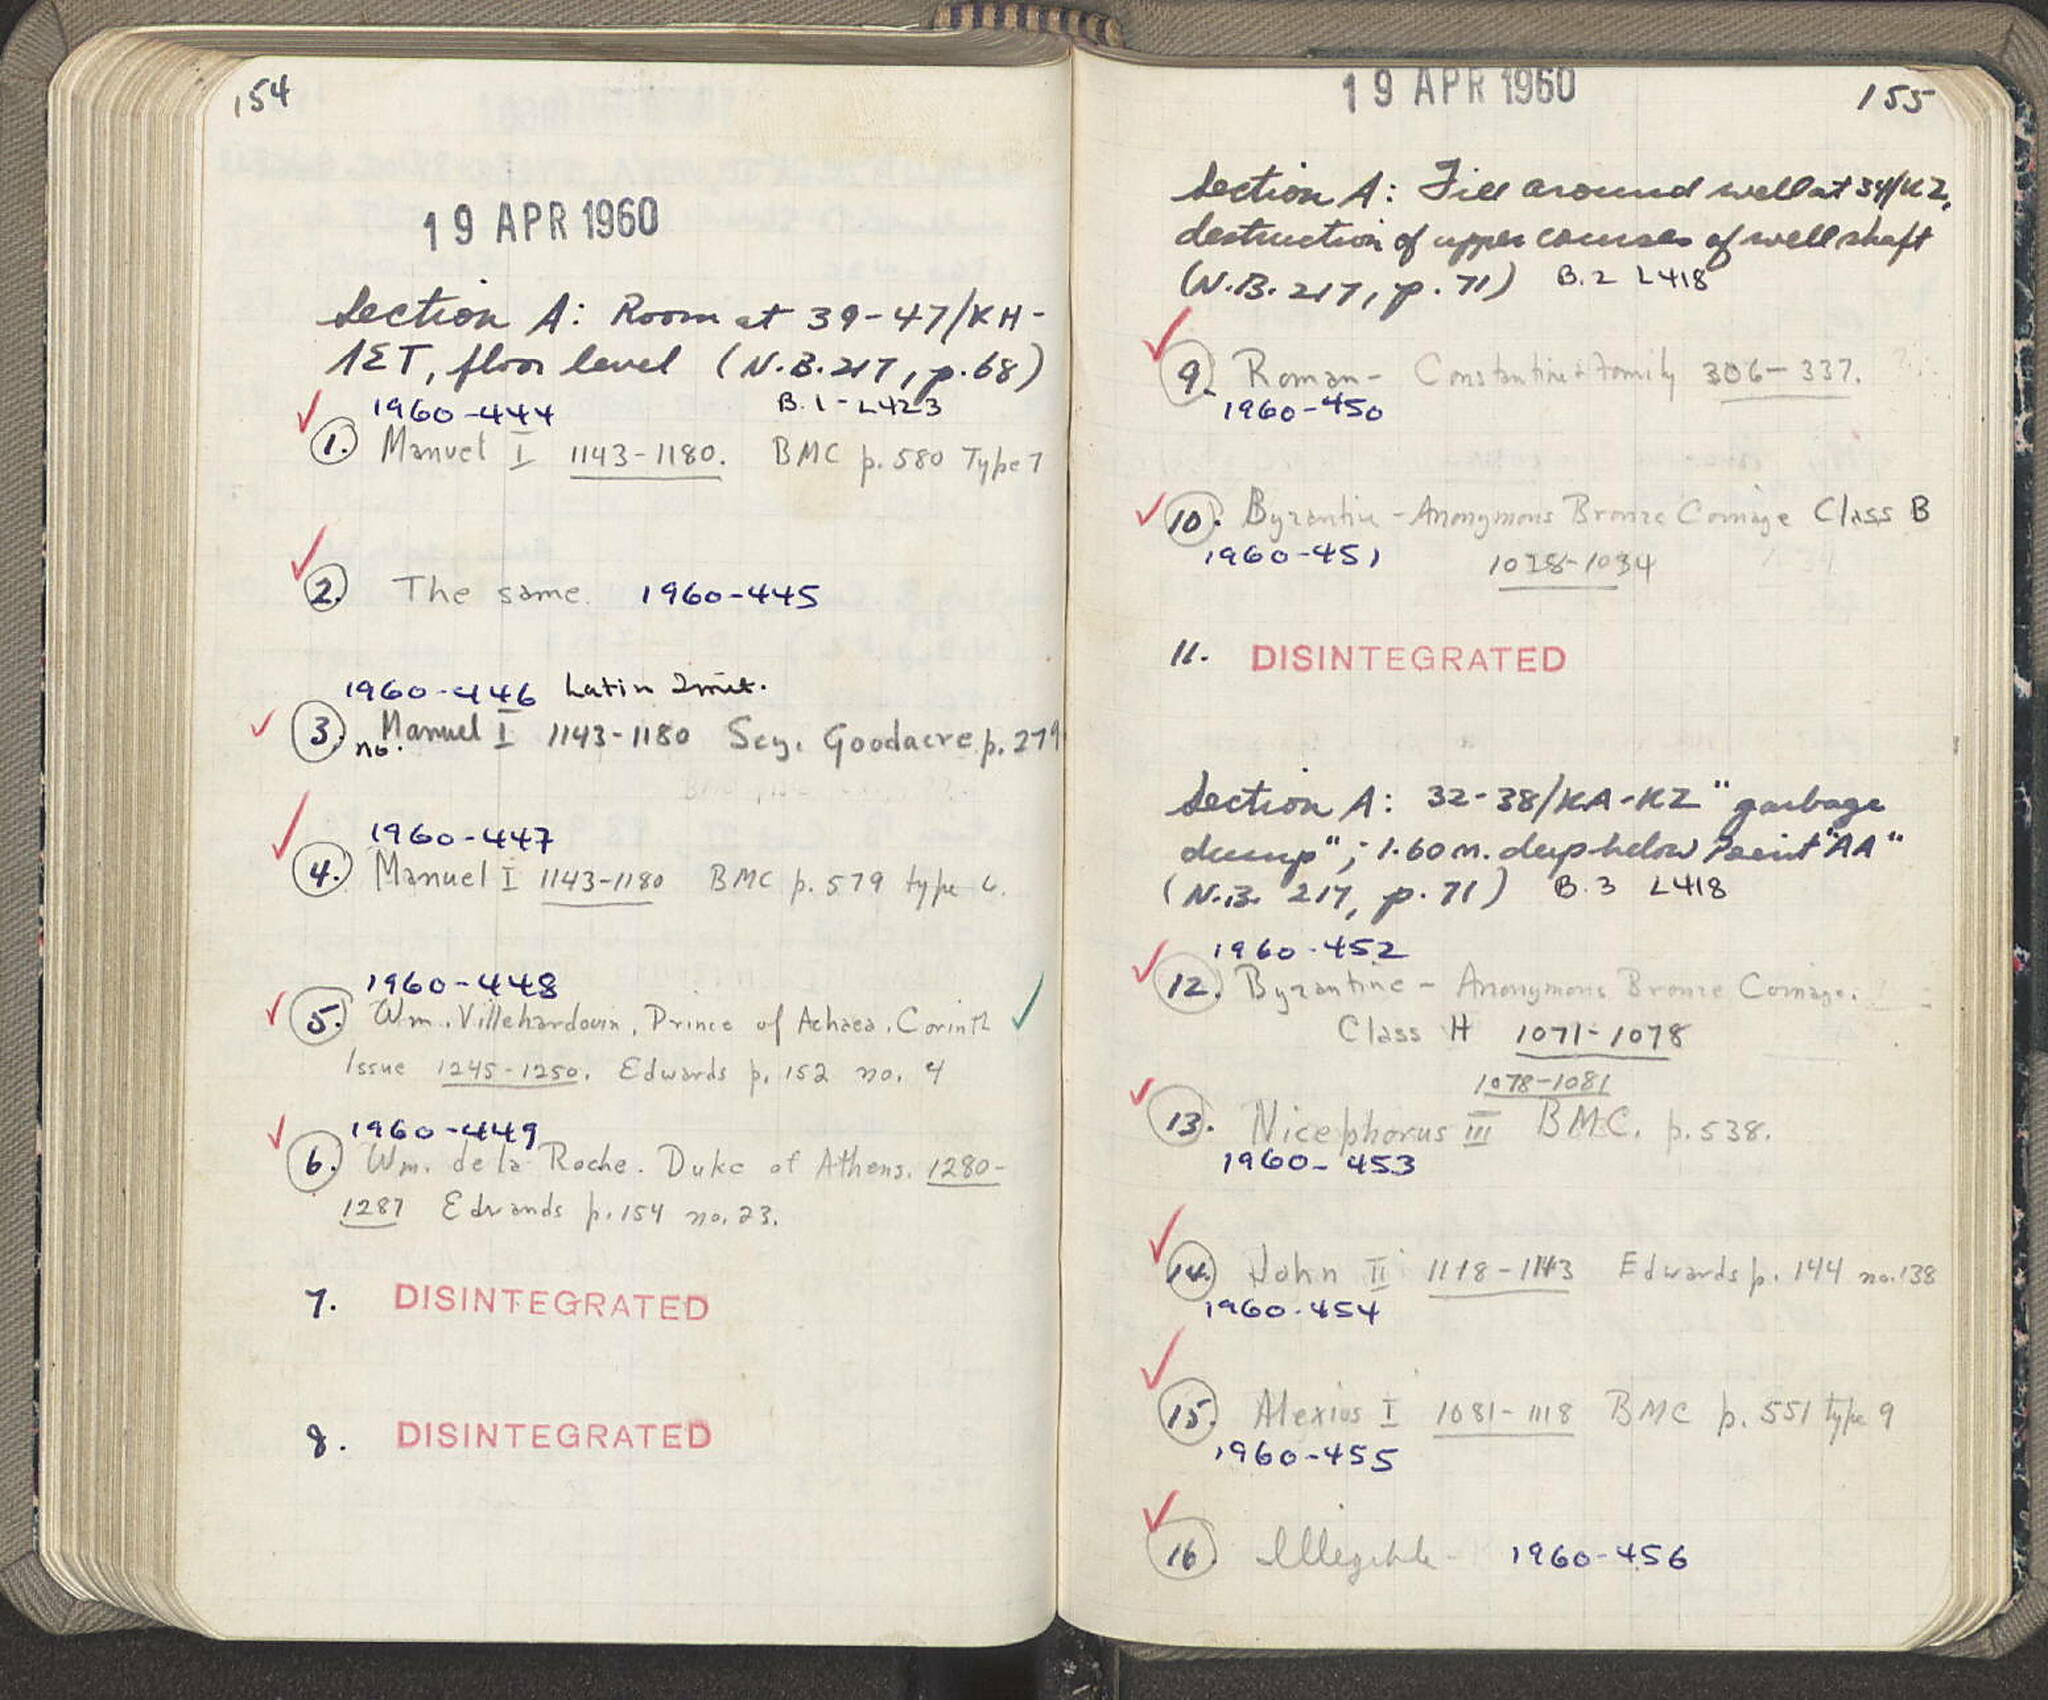 154
19 APR 1960
Section A: Room at 39-47/KH-
ΛΣΤ, floor level (N.B. 217, p. 68)
1960-444 B.1 - L423
1. Manuel I 1143-1180. BMC p. 580 Type 7
2. The same. 1960-445
1960-446 Latin Imit.
3. Manuel I 1143-1180 Scy. Goodacre p. 279
no.
1960-447
4. Manuel I 1143-1180 BMC p. 579 type
1960-448
5. Wm. Villehardouin, Prince of Achaea. Corinth
Issue 1245-1250. Edwards p. 152 no. 4
1960-449
6. Wm. de la Roche. Duke of Athens. 1280-
1287 Edwards p. 154 no. 23.
7. DISINTEGRATED
8. DISINTEGRATED
19 APR 1960
155
Section A: Fill around well at 34/KZ,
destruction of upper courses of well shaft
(N.B. 217, p. 71) B.2 L418
9. Roman - Constantine & Family 306-337.
1960-450
10. Byzantine - Anonymous Bronze Coinage Class B
1960-451 1028-1034
11. DISINTEGRATED
Section A: 32-38/KA-KZ "garbage
dump"; 1.60 m. deep below Point "AA"
(N.B. 217, p. 71) B.3 L418
1960-452
12. Byzantine - Anonymous Bronze Coinage.
Class H 1071-1078
1078-1081
13. Nicephorus III BMC. p. 538.
1960-453
14. John II 1118-1143 Edwards p. 144 no. 138
1960-454
15. Alexios I 1081-1118 BMC p. 551 type 9
1960-455
16. Illegible - 1960-456